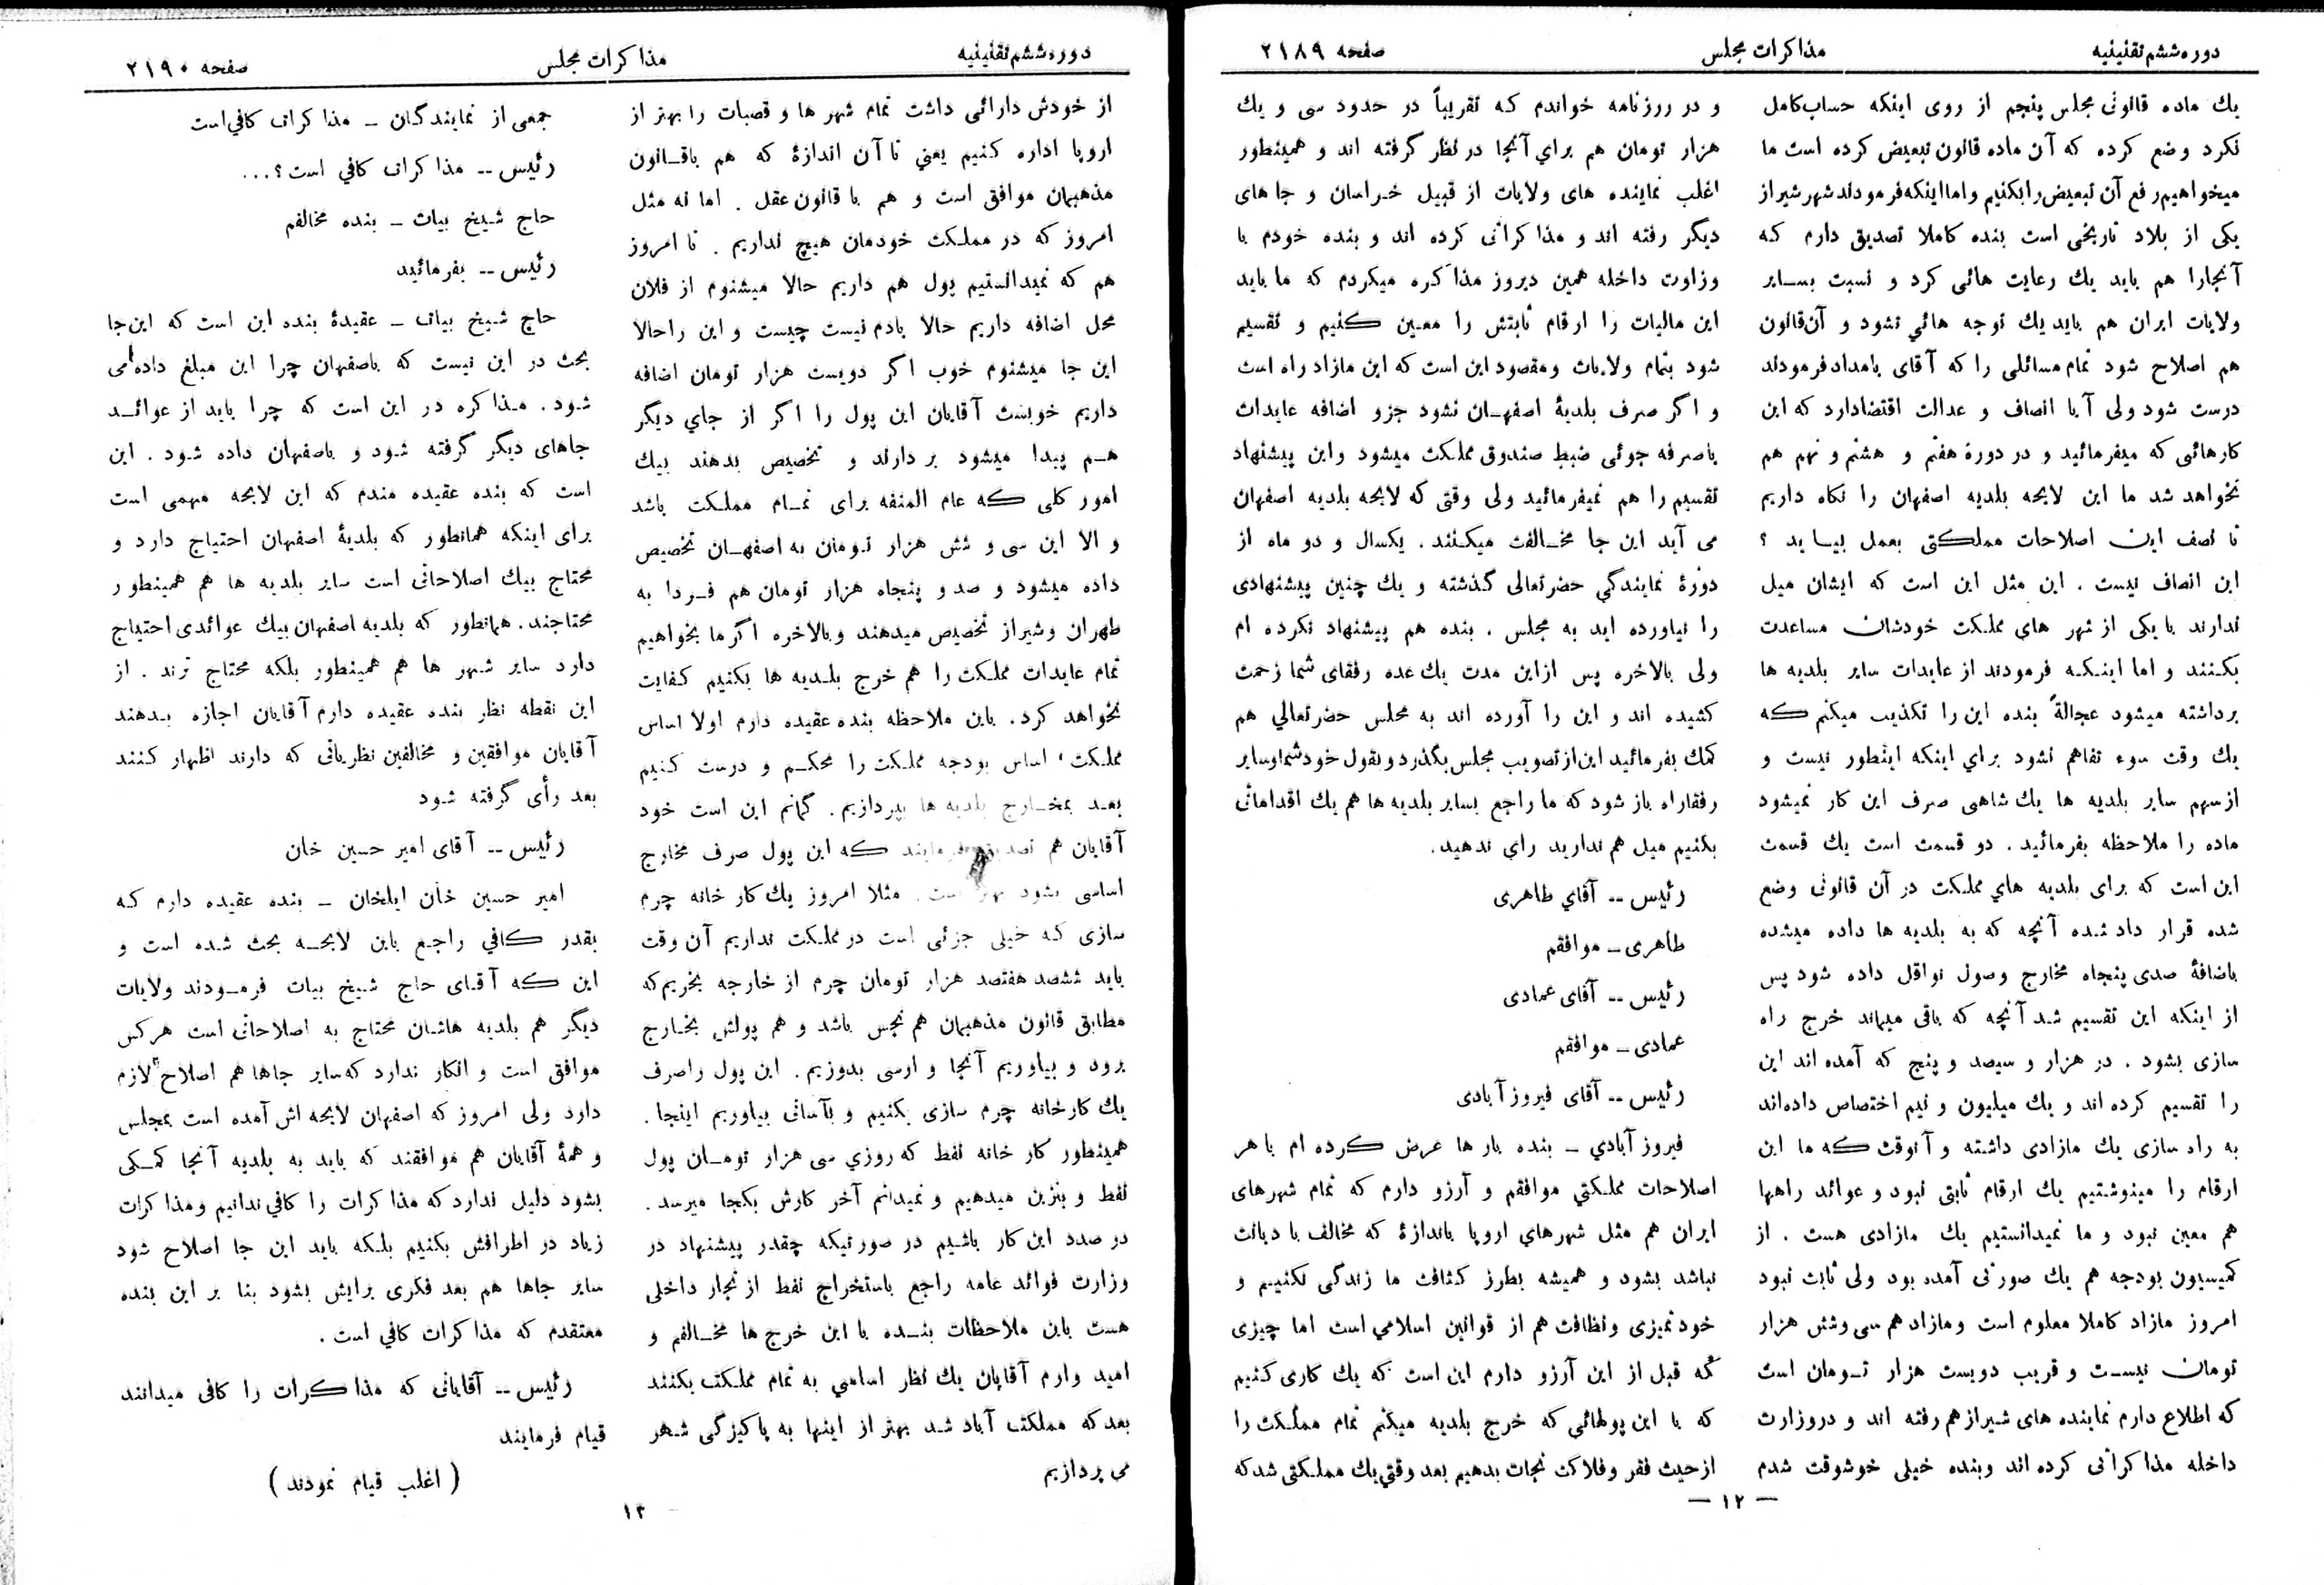 دوره ششم تقنینیه
مذاکرات مجلس
صفحه ۲۱۸۹
یك ماده قانونی مجلس پنجم از روی اینکه حساب کامل
نکرد وضع کرده که آن ماده قانون تبعیض کرده است ما
میخواهیم رفع آن تبعیض را بکنیم و اما اینکه فرمودند شهر شیراز
یکی از بلاد تاریخی است بنده کاملا تصدیق دارم که
آنجارا هم باید یك رعایت هائی کرد و نسبت بسایر
ولایات ایران هم باید یك توجه هائی نشود و آن قانون
هم اصلاح شود تمام مسائلی را که آقای بامداد فرمودند
درست شود ولی آیا انصاف و عدالت اقتضا دارد که این
کارهائی که میفرمائید و در دورهٔ هفتم و هشتم و نهم هم
نخواهد شد ما این لایحه بلدیه اصفهان را نگاه داریم
تا نصف این اصلاحات مملکتی بعمل بیاید ؟
این انصاف نیست . این مثل این است که ایشان میل
ندارند با یکی از شهر های مملکت خودشان مساعدت
بکنند و اما اینکه فرمودند از عایدات سایر بلدیه ها
برداشته میشود عجالةً بنده این را تکذیب میکنم که
یك وقت سوء تفاهم نشود برای اینکه اینطور نیست و
از سهم سایر بلدیه ها یك شاهی صرف این کار نمیشود
ماده را ملاحظه بفرمائید . دو قسمت است یك قسمت
این است که برای بلدیه های مملکت در آن قانونی وضع
شده قرار داد شده آنچه که به بلدیه ها داده میشده
باضافهٔ صدی پنجاه مخارج وصول نواقل داده شود پس
از اینکه این تقسیم شد آنچه که باقی میماند خرج راه
سازی بشود . در هزار و سیصد و پنج که آمده اند این
را تقسیم کرده اند و یك میلیون و نیم اختصاص داده اند
به راه سازی یك مازادی داشته و آنوقت که ما این
ارقام را مینوشتیم یك ارقام ثابتی نبود و عوائد راهها
هم معین نبود و ما نمیدانستیم یك مازادی هست . از
کمیسیون بودجه هم یك صورتی آمده بود ولی ثابت نبود
امروز مازاد کاملا معلوم است و مازاد هم سی و شش هزار
تومان نیست و قریب دویست هزار تومان است
که اطلاع دارم نماینده های شیراز هم رفته اند و در وزارت
داخله مذاکراتی کرده اند و بنده خیلی خوشوقت شدم
و در روزنامه خواندم که تقریباً در حدود سی و یك
هزار تومان هم برای آنجا در نظر گرفته اند و همینطور
اغلب نماینده های ولایات از قبیل خراسان و جاهای
دیگر رفته اند و مذاکراتی کرده اند و بنده خودم با
وزاوت داخله همین دیروز مذاکره میکردم که ما باید
این مالیات را ارقام ثابتش را معین کنیم و تقسیم
شود بتمام ولایات و مقصود این است که این مازاد راه است
و اگر صرف بلدیهٔ اصفهان نشود جزو اضافه عایدات
یا صرفه جوئی ضبط صندوق مملکت میشود و این پیشنهاد
تقسیم را هم نمیفرمائید ولی وقتی که لایحه بلدیه اصفهان
می آید این جا مخالفت میکنند . یکسال و دو ماه از
دورهٔ نمایندگی حضرتعالی گذشته و یك چنین پیشنهادی
را نیاورده اید به مجلس . بنده هم پیشنهاد نکرده ام
ولی بالاخره پس از این مدت یك عده رفقای شما زحمت
کشیده اند و این را آورده اند به مجلس حضرتعالی هم
کمك بفرمائید این از تصویب مجلس بگذرد و بقول خود شما و سایر
رفقا راه باز شود که ما راجع بسایر بلدیه ها هم یك اقداماتی
بکنیم میل هم ندارید رای ندهید .
رئیس -- آقای طاهری
طاهری - موافقم
رئیس -- آقای عمادی
عمادی - موافقم
رئیس -- آقای فیروز آبادی
فیروز آبادی - بنده بار ها عرض کرده ام با هر
اصلاحات مملکتی موافقم و آرزو دارم که تمام شهرهای
ایران هم مثل شهرهای اروپا باندازهٔ که مخالف با دیانت
نباشد بشود و همیشه بطرز کثافت ما زندگی نکنیم و
خود تمیزی و نظافت هم از قوانین اسلامی است اما چیزی
که قبل از این آرزو دارم این است که یك کاری کنیم
که با این پولهائی که خرج بلدیه میکنم تمام مملکت را
از حیث فقر و فلاکت نجات بدهیم بعد وقتی یك مملکتی شد که
— ۱۲ —
دوره ششم تقنینیه
مذاکرات مجلس
صفحه ۲۱۹۰
از خودش دارائی داشت تمام شهر ها و قصبات را بهتر از
اروپا اداره کنیم یعنی تا آن اندازهٔ که هم باقانون
مذهبمان موافق است و هم با قانون عقل . اما نه مثل
امروز که در مملکت خودمان هیچ نداریم . تا امروز
هم که نمیدانستیم پول هم داریم حالا میشنوم از فلان
محل اضافه داریم حالا یادم نیست چیست و این را حالا
این جا میشنوم خوب اگر دویست هزار تومان اضافه
داریم خوبست آقایان این پول را اگر از جای دیگر
هم پیدا میشود بر دارند و تخصیص بدهند بیك
امور کلی که عام المنفه برای تمام مملکت باشد
و الا این سی و شش هزار تومان به اصفهان تخصیص
داده میشود و صد و پنجاه هزار تومان هم فردا به
طهران و شیراز تخصیص میدهند و بالاخره اگر ما بخواهیم
تمام عایدات مملکت را هم خرج بلدیه ها بکنیم کفایت
نخواهد کرد . باین ملاحظه بنده عقیده دارم اولا اساس
مملکت ، اساس بودجه مملکت را محکم و درست کنیم
بعد بمخارج بلدیه ها بپردازیم . گمانم این است خود
آقایان هم که این پول صرف مخارج
اساسی بشود . مثلا امروز یك کار خانه چرم
سازی که خیلی جزئی است در مملکت نداریم آن وقت
باید ششصد هفتصد هزار تومان چرم از خارجه بخریم که
مطابق قانون مذهبمان هم نجس باشد و هم پولش بخارج
برود و بیاوریم آنجا و ارسی بدوزیم . این پول را صرف
یك کارخانه چرم سازی بکنیم و بآسانی بیاوریم اینجا .
همینطور کار خانه نفط که روزی سی هزار تومان پول
نفط و بنزین میدهیم و نمیدانم آخر کارش بکجا میرسد .
در صدد این کار باشیم در صورتیکه چقدر پیشنهاد در
وزارت فوائد عامه راجع باستخراج نفط از تجار داخلی
هست باین ملاحظات بنده با این خرج ها مخالفم و
امید وارم آقایان یك نظر اساسی به تمام مملکت بکنند
بعد که مملکت آباد شد بهتر از اینها به پاکیزگی شهر
می پردازیم
جمعی از نمایندگان - مذاکرات کافی است
رئیس -- مذاکرات کافی است ؟ ...
حاج شیخ بیات - بنده مخالفم
رئیس -- بفرمائید
حاج شیخ بیات - عقیدهٔ بنده این است که این جا
بحث در این نیست که باصفهان چرا این مبلغ داده می
شود . مذاکره در این است که چرا باید از عوائد
جاهای دیگر گرفته شود و باصفهان داده شود . این
است که بنده عقیده مندم که این لایحه مهمی است
برای اینکه همانطور که بلدیهٔ اصفهان احتیاج دارد و
محتاج بیك اصلاحاتی است سایر بلدیه ها هم همینطور
محتاجند . همانطور که بلدیه اصفهان بیك عوائدی احتیاج
دارد سایر شهر ها هم همینطور بلکه محتاج ترند . از
این نقطه نظر بنده عقیده دارم آقایان اجازه بدهند
آقایان موافقین و مخالفین نظریاتی که دارند اظهار کنند
بعد رأی گرفته شود
رئیس -- آقای امیر حسین خان
امیر حسین خان ایلخان - بنده عقیده دارم که
بقدر کافی راجع باین لایحه بحث شده است و
این که آقای حاج شیخ بیات فرمودند ولایات
دیگر هم بلدیه هاشان محتاج به اصلاحاتی است هر کس
موافق است و انکار ندارد که سایر جاها هم اصلاح لازم
دارد ولی امروز که اصفهان لایحه اش آمده است بمجلس
و همهٔ آقایان هم موافقند که باید به بلدیه آنجا کمکی
بشود دلیل ندارد که مذاکرات را کافی ندانیم و مذاکرات
زیاد در اطرافش بکنیم بلکه باید این جا اصلاح شود
سایر جاها هم بعد فکری برایش بشود بنا بر این بنده
معتقدم که مذاکرات کافی است .
رئیس -- آقایانی که مذاکرات را کافی میدانند
قیام فرمایند
( اغلب قیام نمودند )
۱۳